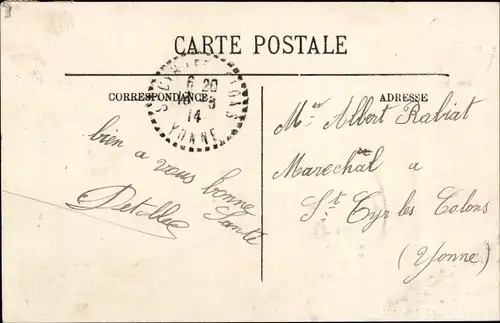 CARTE POSTALE
CORRESPONDANCE
ADRESSE
6 20
14
YONNE
bien a vous bonne
Santé
Detollee
Mr Albert Rabiat
Marechal a
St Cyr les Colons
(Yonne)